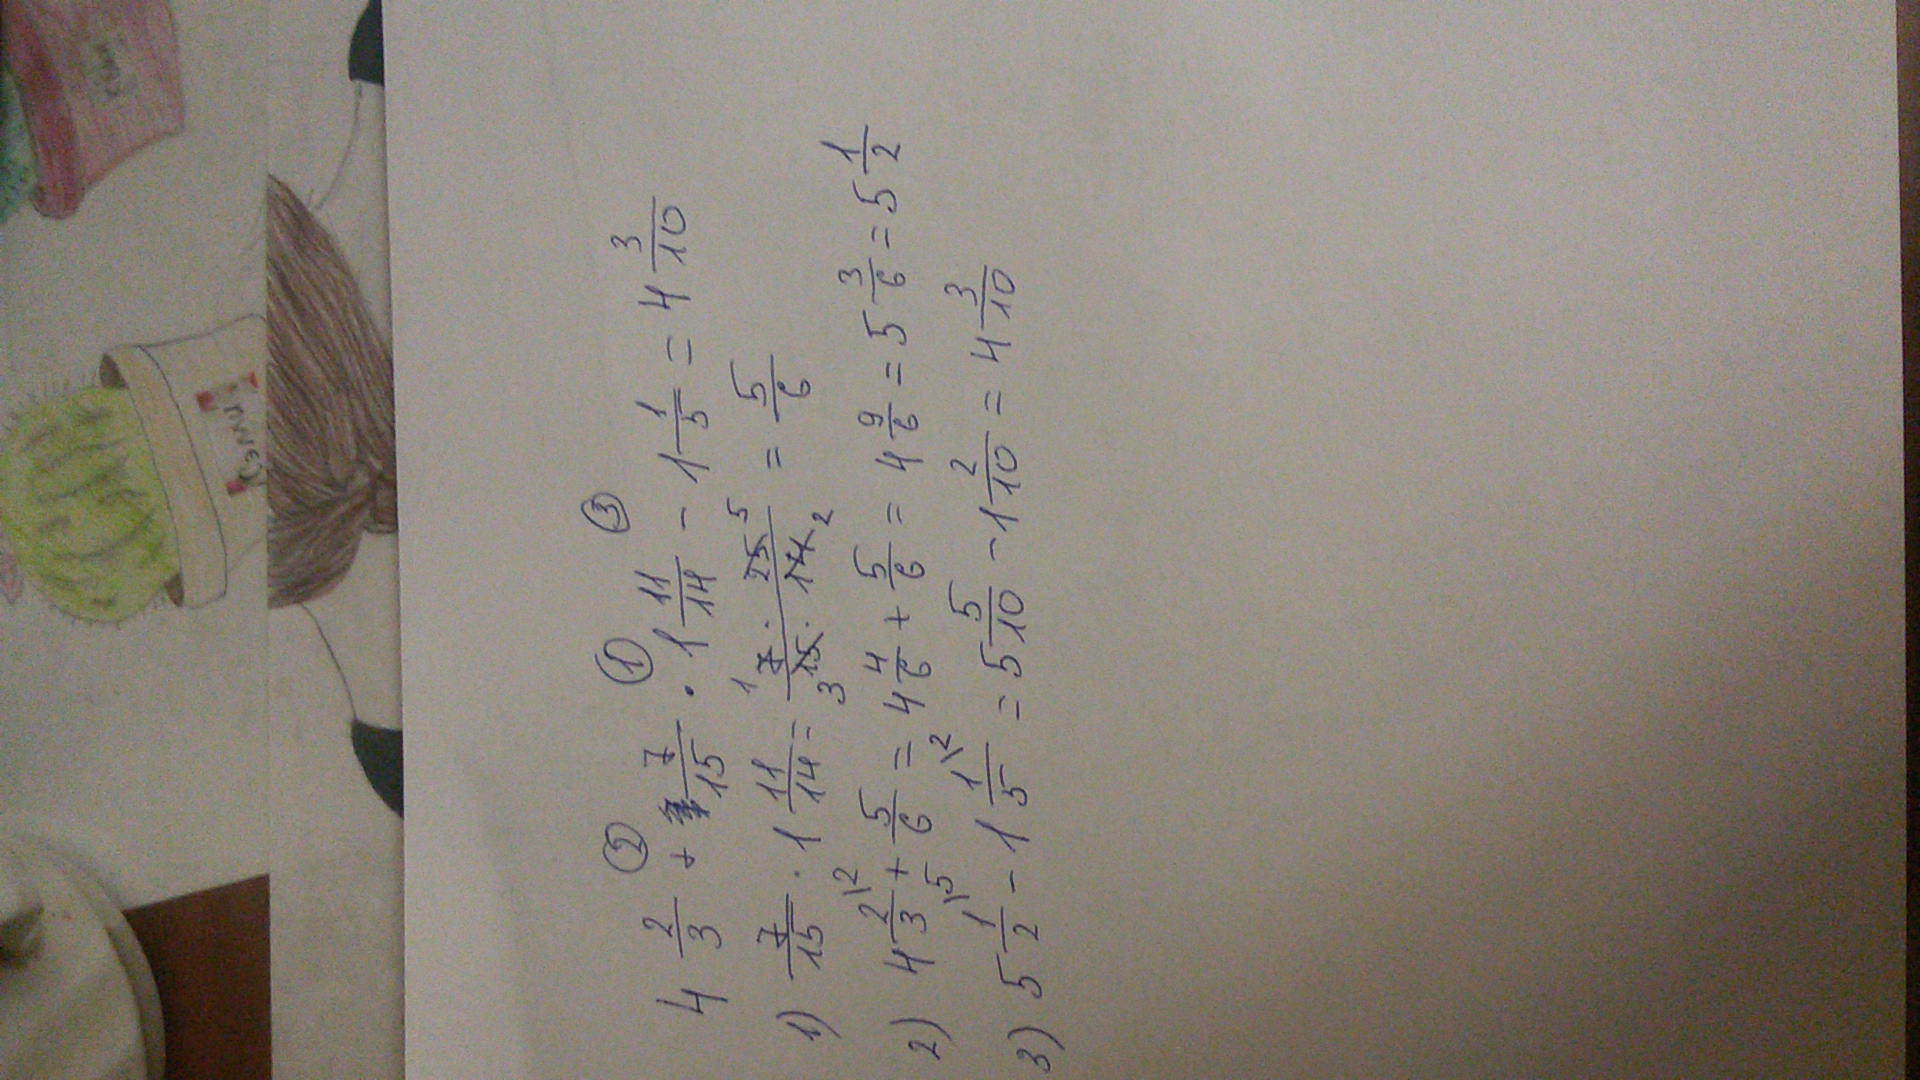 Кэлли
② ① ③
4 2/3 + 7/15 · 1 11/14 − 1 1/5 = 4 3/10
1) 7/15 · 1 11/14 = 7 · 25 / 15 · 14 = 5/6
2) 4 2/3 + 5/6 = 4 4/6 + 5/6 = 4 9/6 = 5 3/6 = 5 1/2
3) 5 1/2 − 1 1/5 = 5 5/10 − 1 2/10 = 4 3/10